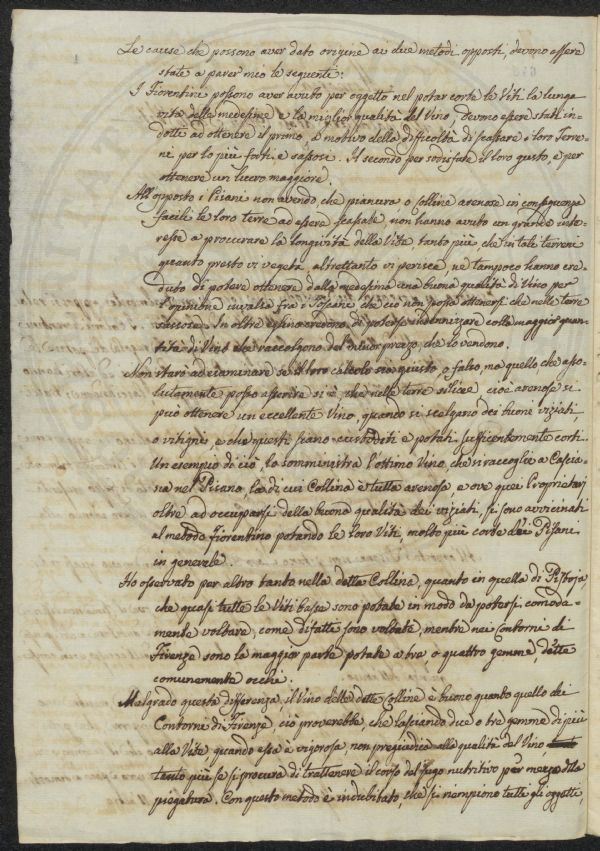 Le cause che possono aver dato origine ai due metodi opposti, devono essere
state a parer mio le seguenti:
I Fiorentini possono aver avuto per oggetto nel potar corte le Viti la lunga
vità delle medesime e la miglior qualità del Vino, devono essere stati in=
dotte ad ottenere il primo a motivo della difficoltà di scassare i loro Terre=
ni per lo più forti, e sassosi. Il secondo per sodisfare il loro gusto, e per
ottenere un lucro maggiore.
All'opposto i Pisani non avendo, che pianura o Colline arenose in conseguenza
facili le loro terre ad essere scassate non hanno avuto un grande inte=
resse a proccurare la longività della Vite, tanto più, che in tali terreni
quanto presto vi vegeta, altrettanto vi perisce, ne tampoco hanno cre=
duto di potere ottenere dalla medesima una buona qualità di Vino per
l'opinione invalsa fra i Toscani che ciò non possa ottenersi che nelle terre
In oltre essi credono di potersi indennizzare colla maggior quan=
tità di Vino che raccolgono del minor prezzo, che lo vendono.
Non starò ad esaminare se il loro calcolo sia giusto, o falso, ma quello che asso=
lutamente posso asserire si è, che nelle terre silicee cioè arenose si
può ottenere un eccellente Vino, quando si scelgano dei buoni viziati
o vitigni, e che questi siano custoditi e potati sufficientemente corti.
Un esempio di ciò, lo somministra l'ottimo Vino, che si raccoglie a Cascia=
na nel Pisano, la di cui Collina è tutta arenosa e ove quei Proprietarj
oltre ad occuparsi della buona qualità dei viziati, si sono avvicinati
al metodo fiorentino potando le loro Viti, molto più corte dei Pisani
in generale.
Ho osservato per altro tanto nella detta Collina, quanto in quella di Pistoja,
che quasi tutte le Viti basse sono potate in modo da potersi comoda=
mente voltare, come difatti sono voltate, mentre nei Contorni di
Firenze sono la maggior parte potate a tre, o quattro gemme, dette
comunemente occhi.
Malgrado questa differenza, il Vino delle dette Colline è buono quanto quello dei
Contorni di Firenze, ciò proverebbe, che lasciando due o tre gemme di più
alla Vite quando essa è vigorosa, non pregiudica alla qualità del Vino
tanto più se si procura di trattenere il corso del sugo nutritivo per mezzo della
piegatura. Con questo metodo è indubitato, che si riempiono tutti gli oggetti,